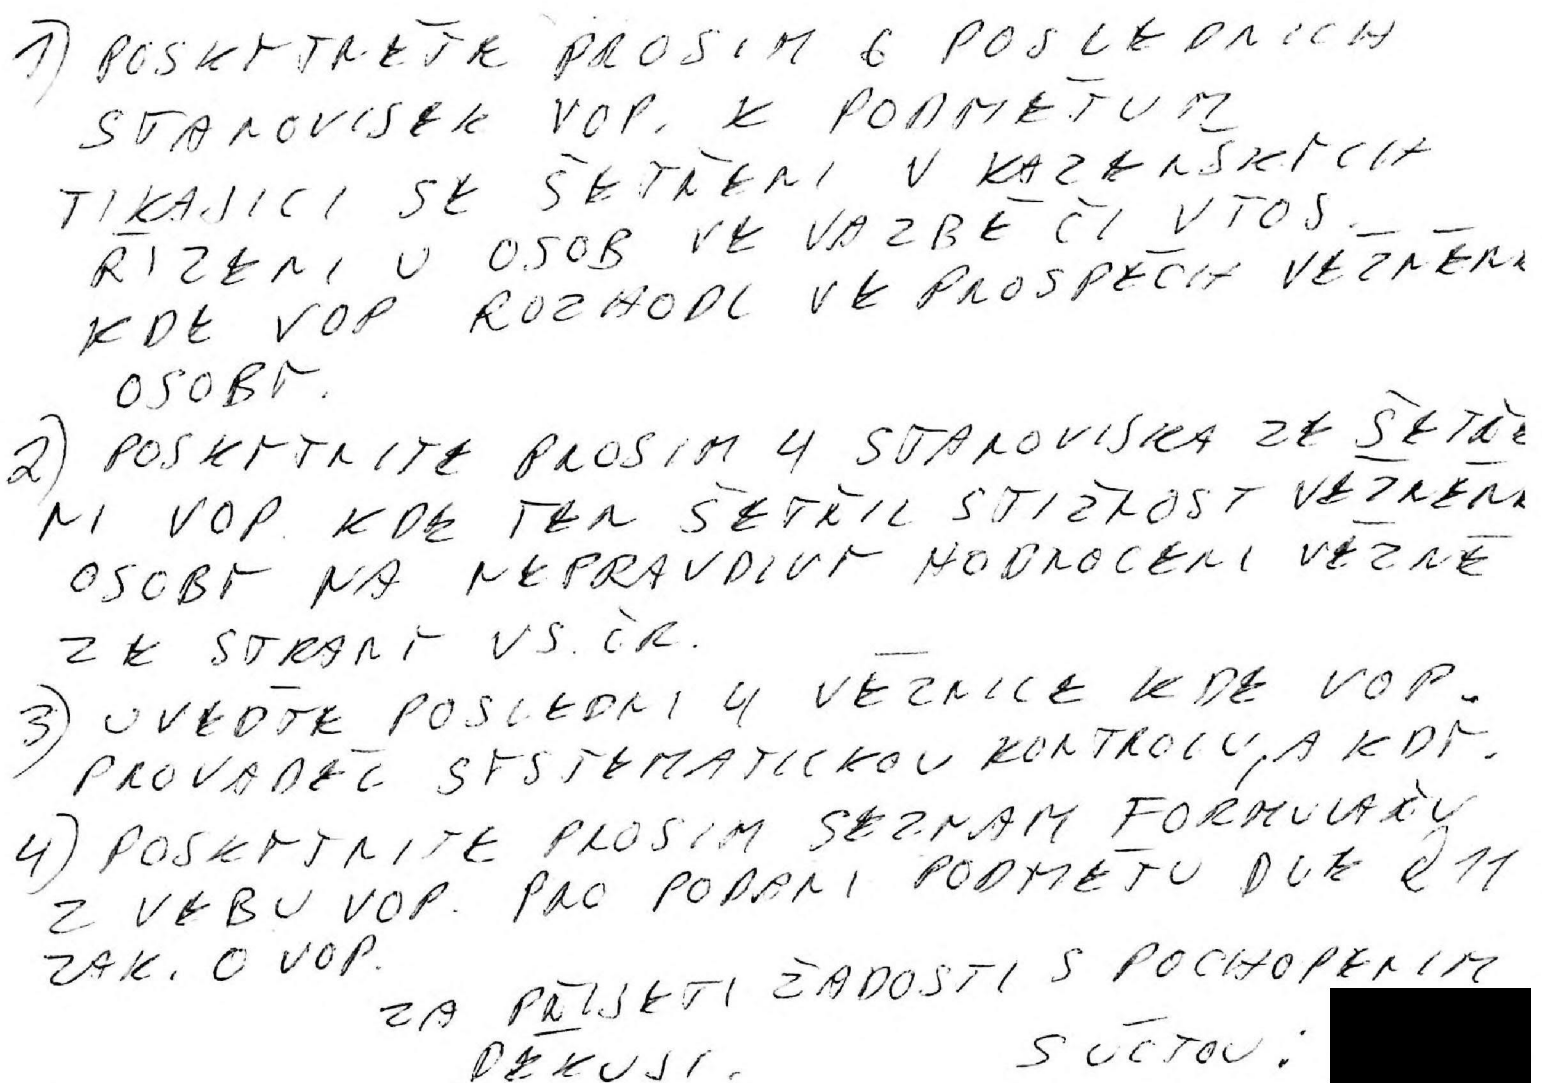 1) POSKYTNĚTE PROSIM 6 POSLEDNICH
STANOVISEK VOP. K PODMĚTUM
TIKAJICI SE ŠETŘENI V KAZEŇSKÝCH
ŘIZENI U OSOB VE VAZBĚ ČI VTOS.
KDE VOP ROZHODL VE PROSPĚCH VĚZNĚNÉ
OSOBY.
2) POSKYTNITE PROSIM 4 STANOVISKA ZE ŠETŘE
NI VOP. KDE TEN ŠETŘIL STIŽNOST VĚZNĚNÉ
OSOBY NA NEPRAVDIVÝ HODNOCENI VĚZNĚ
ZE STRANY VS. ČR.
3) UVEĎTE POSLEDNI 4 VĚZNICE KDE VOP.
PROVADĚL SYSTEMATICKOU KONTROLU, A KDY.
4) POSKYTNITE PROSIM SEZNAM FORMULAŘU
Z VEBU VOP. PRO PODANI PODMĚTU DLE § 11
ZAK. O VOP.
ZA PŘIJETI ŽADOSTI S POCHOPENIM
DĚKUJI. S ÚCTOU: